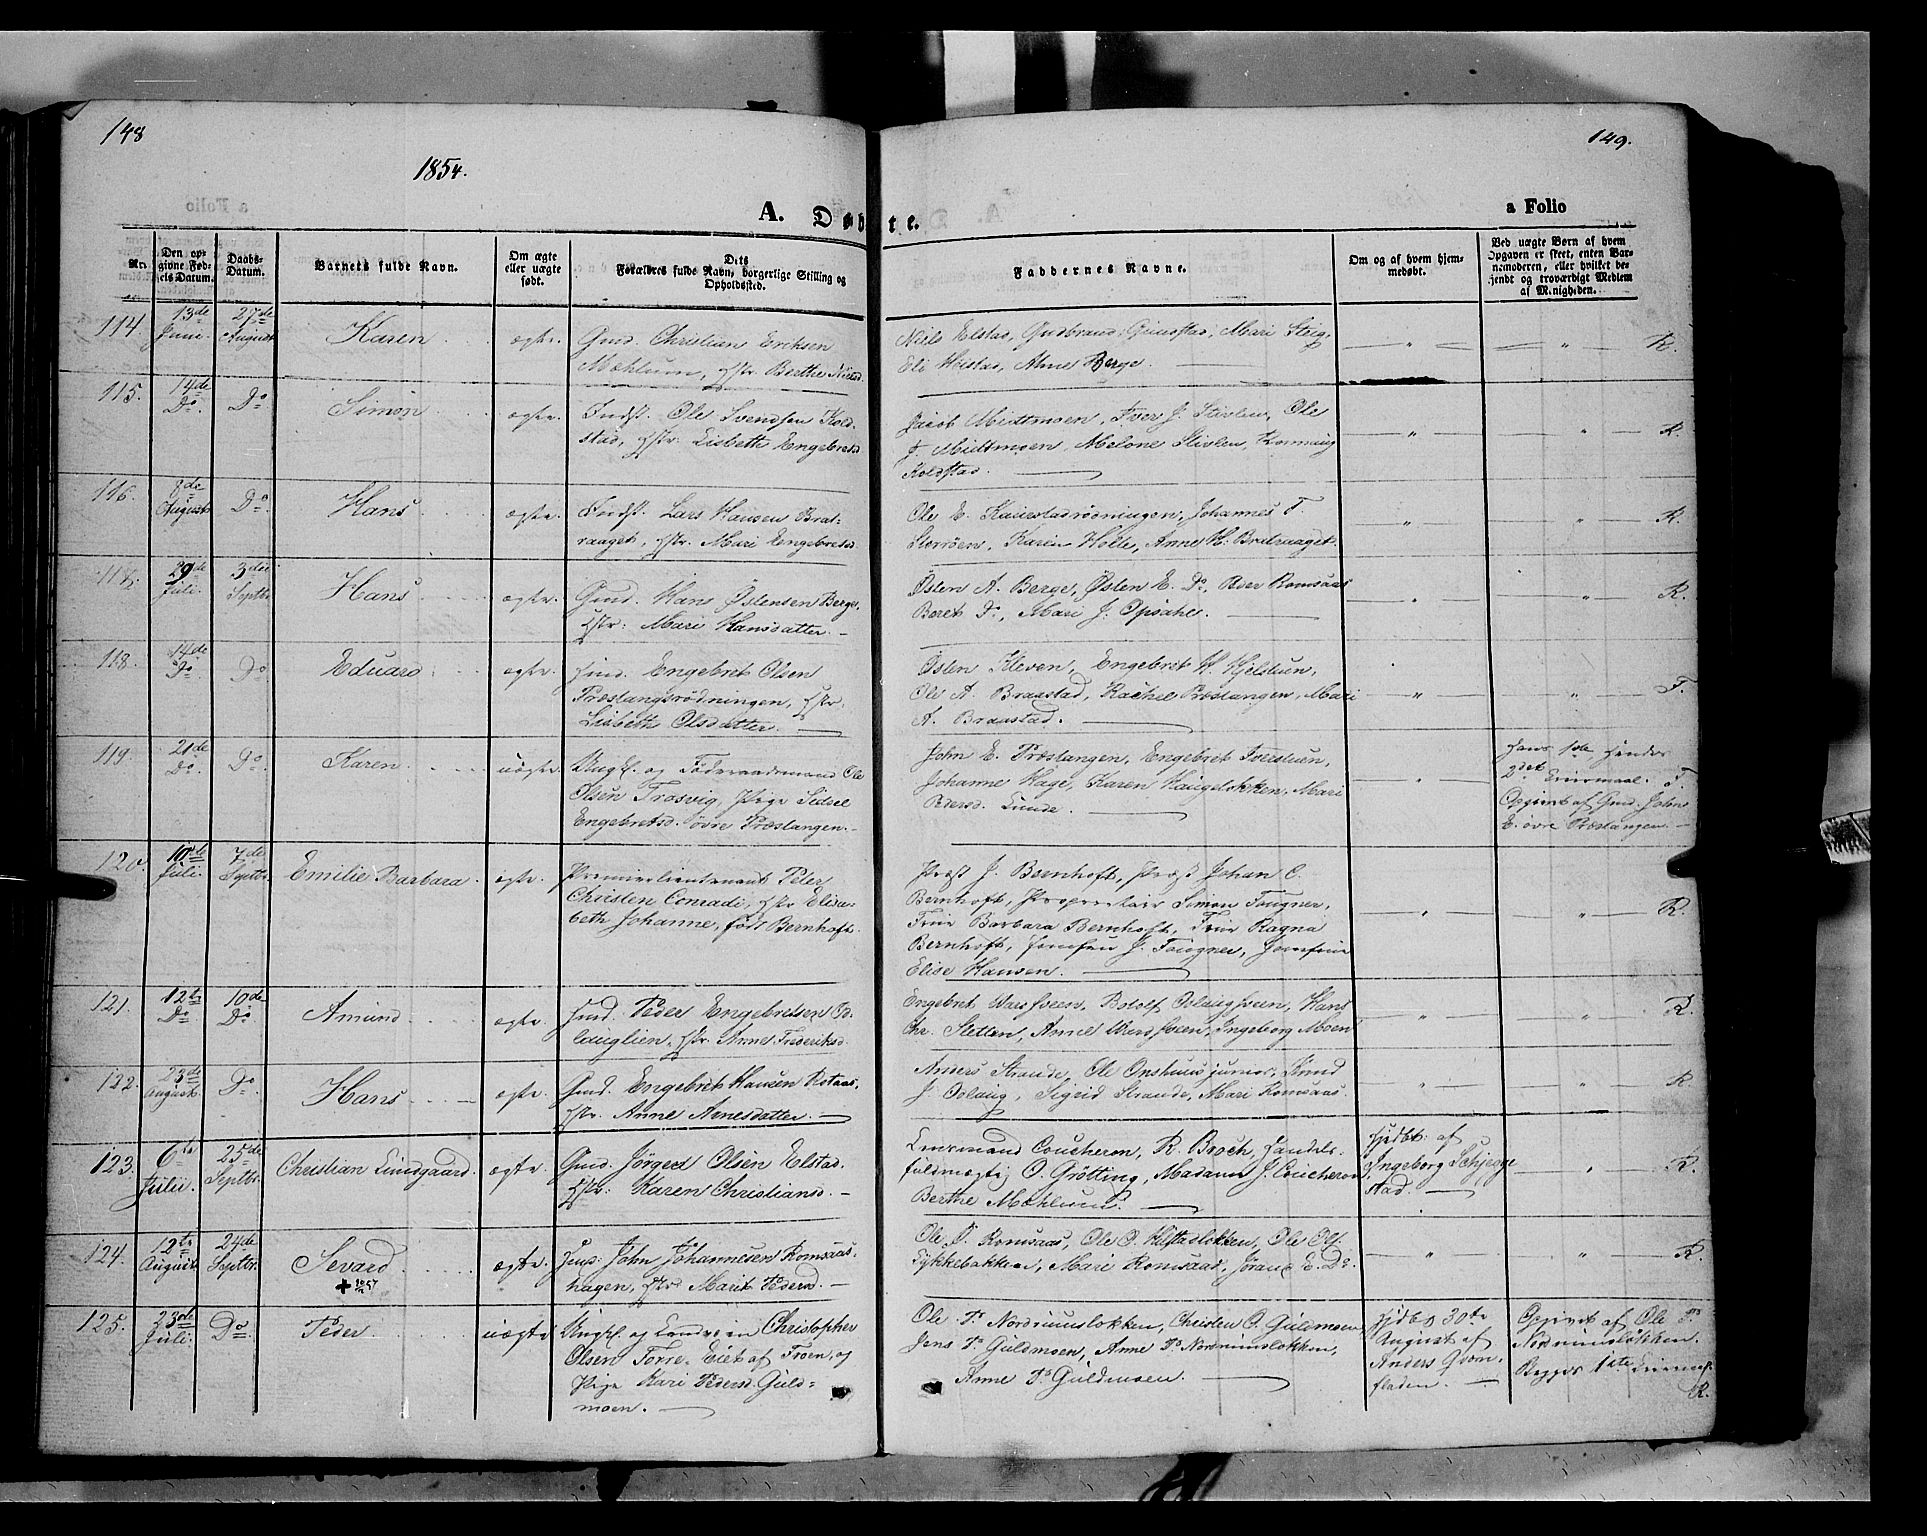 148
149.
1854.
A. Døbte.
a Folio
Nr.
Den opgivne Fødelsdatum.
Daabs-Datum.
Barnets fulde Navn.
Om ægte eller uægte født.
Dets Forældres fulde Navn, borgerlige Stilling og Opholdssted.
Faddernes Navne.
Om og af hvem hjemmedøbt.
Ved uægte Børn af hvem Opgaven er skeet, enten Barnemoderen, eller hvilket bekjendt og troværdigt Medlem af Menigheden.
114. 13de Juni. 27de August Karen ægte. Gmd. Christian Eriksen
Mæhlum, Hstr. Berthe
Niels Elstad, Gudbrand Grimstad, Mari Steig,
Eli Anne Berge. " " R.
115. 14de Do. Do Simon ægte. Indst. Ole Svendsen Kold-
stad, Hstr. Lisbeth Engebretsd
Jacob Midtmoen, Iver J. Stivlen, Ole
J. Midtmoen, Melone Stivlen, Ronnaug
Koldstad. " " R.
116. 8de August Do. Hans ægte. Indst. Lars Hansen Brat-
raaget, Hstr. Mari Engebretsd.
Ole E. Johannes F.
Storröen, Karen Holte, Anne H. Bratraaget. " " R.
117. 29de Juli. 3die Septbr. Hans ægte. Gmd. Hans Østensen Berge,
Hstr: Mari Hansdatter.
Østen A. Berge, Østen E. Do, Iver Romsaas
Beret Do, Mari J. Opsahl. " " R.
118. 14de Do. Do Eduard ægte. Engebret Olsen
Præstangsrödningen, Hstr.
Lisbeth Olsdatter.
Østen Kleven, Engebret H. Kjelstuen,
Ole A. Braastad, Rachel Præstangen, Mari
A. Braastad. " " F.
119. 21de Do. Do. Karen uægte. Ungk. og Föderaadsmand Ole
Olsen Trosvig, Pige Sidsel
Engebretsd. övre Præstangen.
John E. Præstangen, Engebret Iverstuen,
Johanne Hage, Karen Haugelökken, Mari
Pedersd. Lunde. " Hans 1ste, Hendes
2det Leiermaal. F.
Opgivet af Gmd. John
E. övre Præstangen.
120. 10de Juli. 7de Septbr. Emilie Barbara ægte. Premierlieutenant Peter
Christen Conradi, Hstr Elisa-
beth Johanne, född Bernhoft.
Præst J. Bernhoft, Præst Johan C.
Bernhoft, Proprietair Simon Tougner,
Frue Barbara Bernhoft, Frue Ragna
Bernhoft, Jomfru J. Tougner, Jomfrue
Elise Hansen. " " R.
121. 12te Do 10de Do Amund ægte. Peder Engebretsen Os-
lauglien, Hstr. Anne Frederiksd.
Engebret Botolf Oslaugsveen, Hans
Chr. Sletten, Anne Ingeborg Moen " " R.
122. 23de August. Do. Hans ægte. Gmd. Engebret Hansen Rotaas.
Hstr. Anne Arnesdatter.
Anders Strande, Ole Onshuus junior, Knud
J. Oslaug, Sigrid Strande, Mari Romsaas. " " R.
123. 6te Julii. 25de Septbr. Christian Lundgaard ægte. Gmd. Jörgen Olsen Elstad.
Hstr. Karen Christiansd.
Lensmand Coucheron, R. Broch, Handels-
fuldmægtig O. Grötting, Madame J. Coucheron
Berthe Mæhlum. Hjdbt. af
Ingeborg Schjegge-
stad. " R.
124. 12te August 24de Septbr. Sevard ægte Inds. John Johannesen Romsaas-
hagen, Hstr Marit Pedersd.
Ole P. Romsaas, Ole O. Ole Ols.
Lykkebakken, Mari Romsaas, Jörand E. Do. " " R.
125. 23de Juli. Do Peder uægte Ungk. og Landværn Christopher
Olsen Torre- Eiet af Troen, og
Pige Kari Pedersd. Guld-
moen.
Ole P. Nordrumslökken, Christen O. Guldmoen,
Jens P. Guldmoen, Anne P. Nordrumslökken,
Anne P. Guldmoen. Hjdbt 30te
August af
Anders Grøm-
fladen. Opgivet af Ole P.
Nordrumslökken.
Begges 1ste Leiermaal.
R.